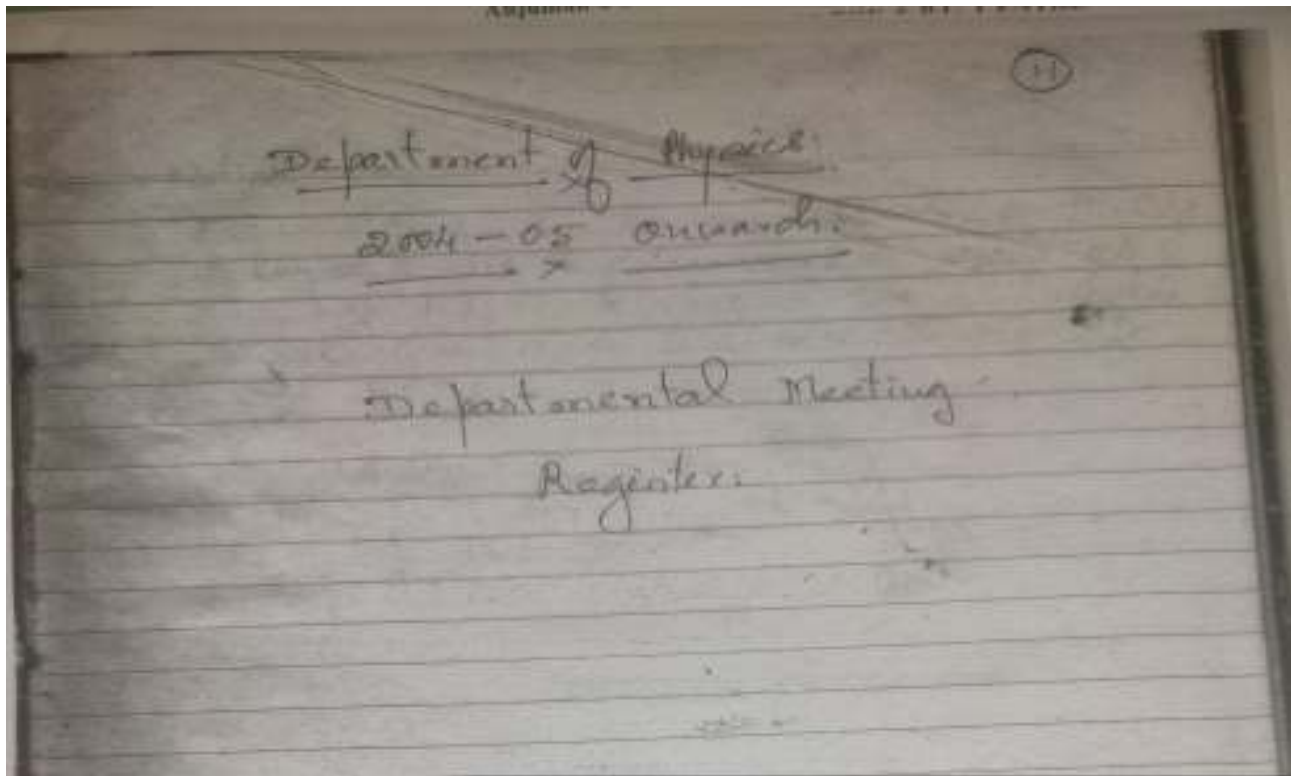 Anjuman
Department of Physics.
2004-05 Onwards.
Departmental Meeting
Register.